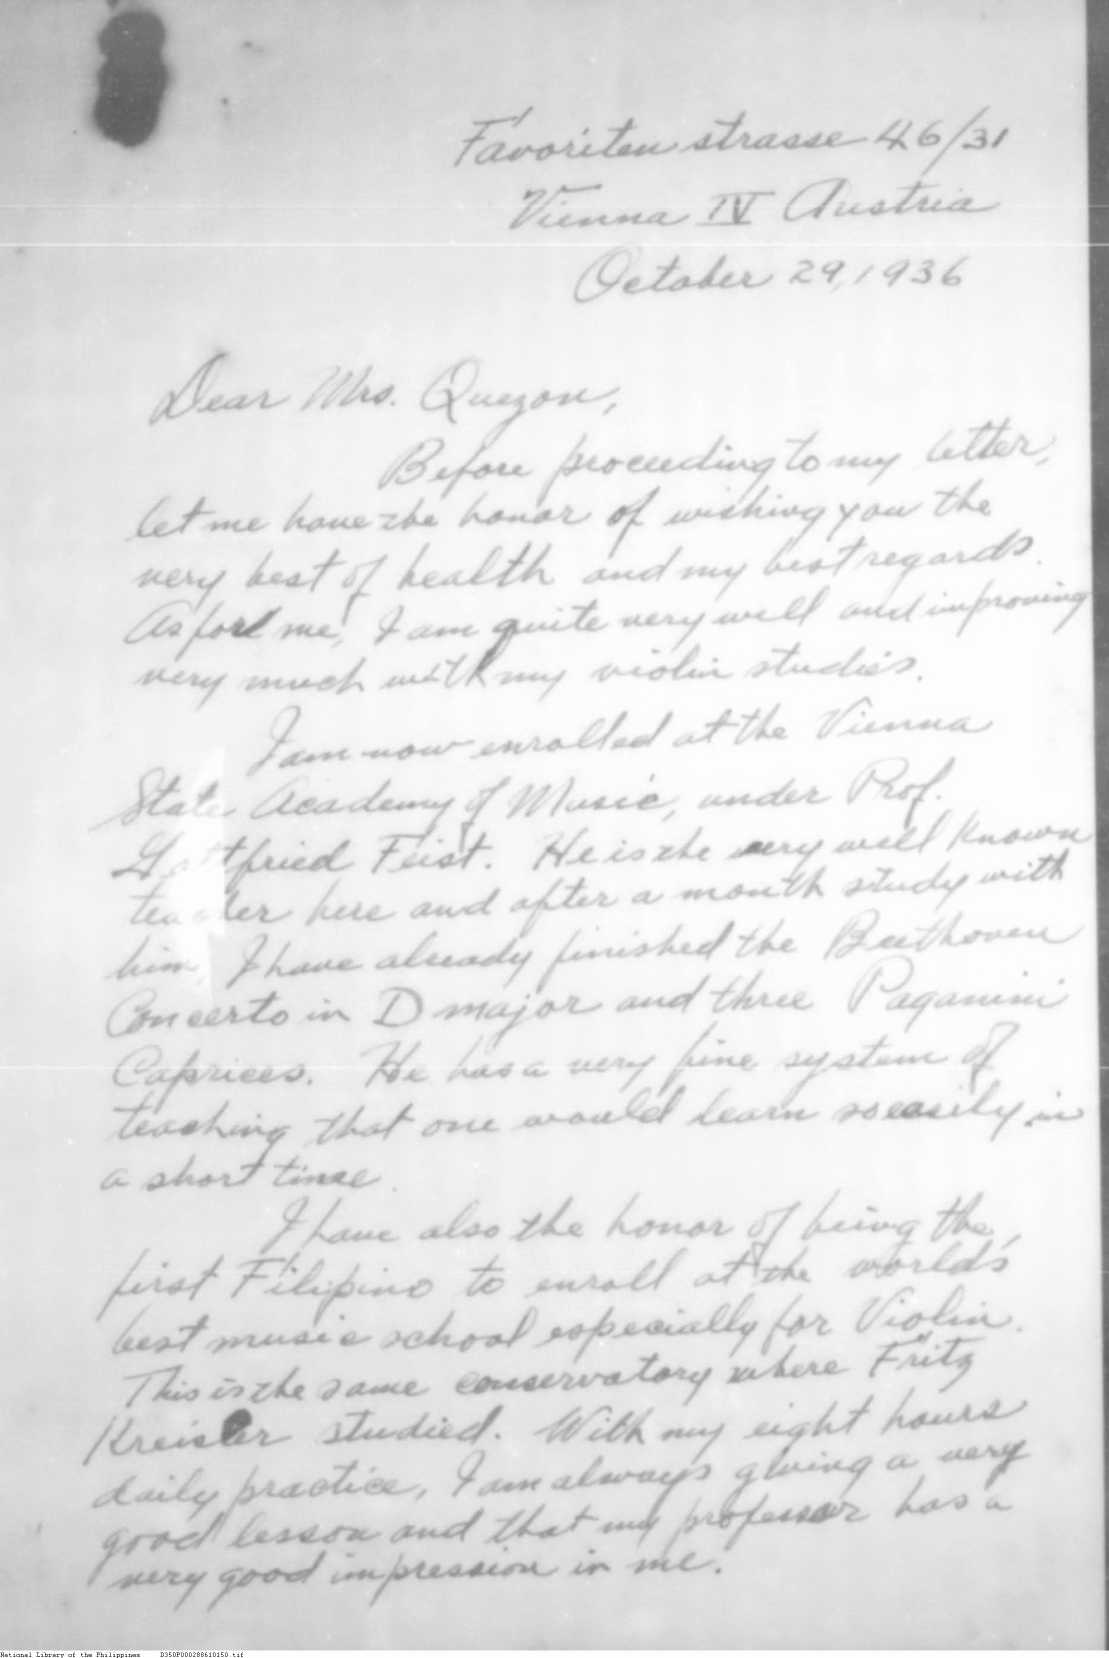 Favoritenstrasse 46/31
Vienna IV Austria
October 29, 1936
Dear Mrs. Quezon,
Before proceeding to my letter,
let me have the honor of wishing you the
very best of health and my best regards.
As for me, I am quite very well and improving
very much with my violin studies.
I am now enrolled at the Vienna
State Academy of Music, under Prof.
Gottfried Feist. He is the very well known
teacher here and after a month study with
him, I have already finished the Beethoven
Concerto in D major and three Paganini
Caprices. He has a very fine system of
teaching that one would learn so easily in
a short time.
I have also the honor of being the
first Filipino to enroll at the world's
best music school especially for Violin.
This is the same conservatory where Fritz
Kreisler studied. With my eight hours
daily practice, I am always giving a very
good lesson and that my professor has a
very good impression in me.
National Library of the Philippines D350P000288610150.tif